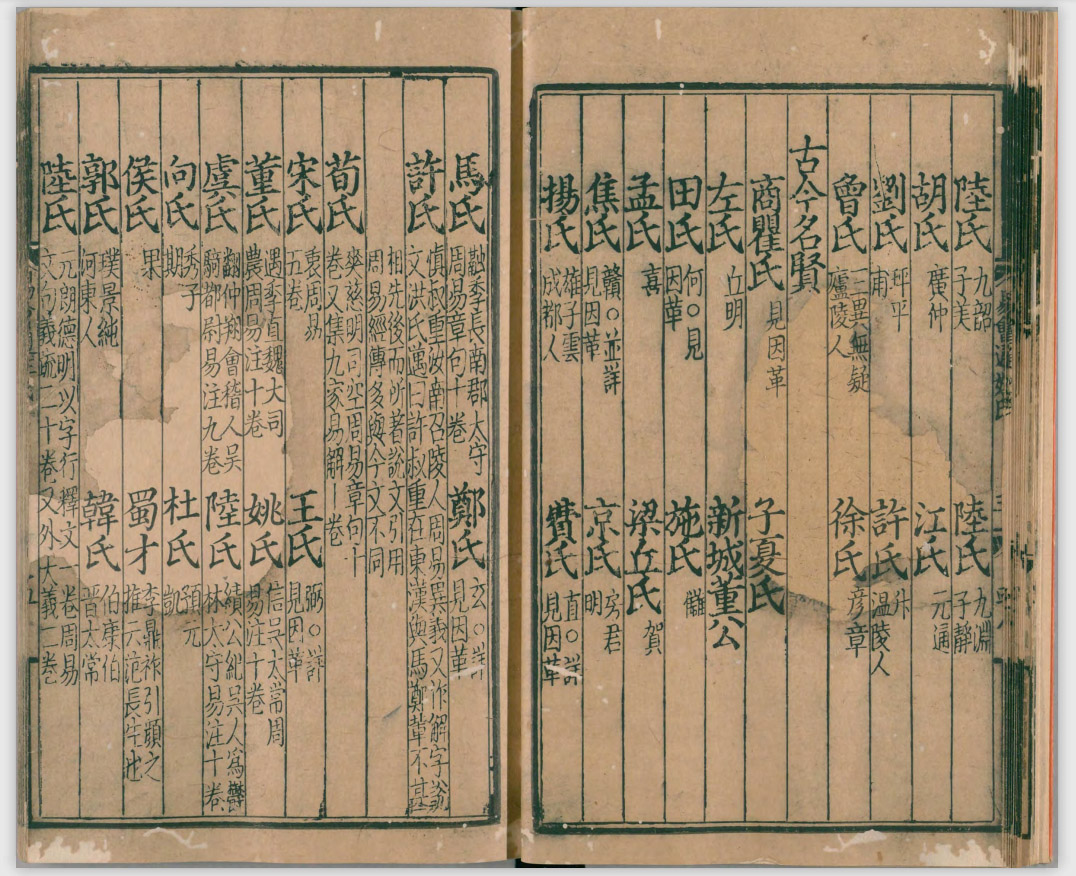 陸氏 九韶子美 陸氏 九淵子靜
胡氏 廣仲 江氏 元適
劉氏 坪平甫 許氏 升温陵人
曾氏 三異無疑廬陵人 徐氏 彦章
古今名賢
商瞿氏 見因革 子夏氏
左氏 丘明 新城董公
田氏 何○見因革 施氏 讎
孟氏 喜 梁丘氏 賀
焦氏 贛○並詳見因革 京氏 房君明
揚氏 雄子雲成都人 費氏 直○詳見因革
馬氏 融季長南郡太守周易章句十卷 鄭氏 玄○詳見因革
許氏 慎叔重汝南召陵人周易異義又作解字說文洪氏邁曰許叔重在東漢與馬鄭輩不甚
相先後而所著說文引用周易經傳多與今文不同
荀氏 爽慈明司空周易章句十卷又集九家易解一卷
宋氏 衷周易五卷 王氏 弼○詳見因革
董氏 遇季直魏大司農周易注十卷 姚氏 信吳太常周易注十卷
虞氏 翻仲翔會稽人吳騎都尉易注九卷 陸氏 績公紀吳人爲鬱林太守易注十卷
向氏 秀子期 杜氏 預元凱
侯氏 果 蜀才 李鼎祚引顏之推云范長生也
郭氏 璞景純河東人 韓氏 伯康伯晉太常
陸氏 元朗德明以字行釋文一卷周易文句義疏二十卷又外大義二卷